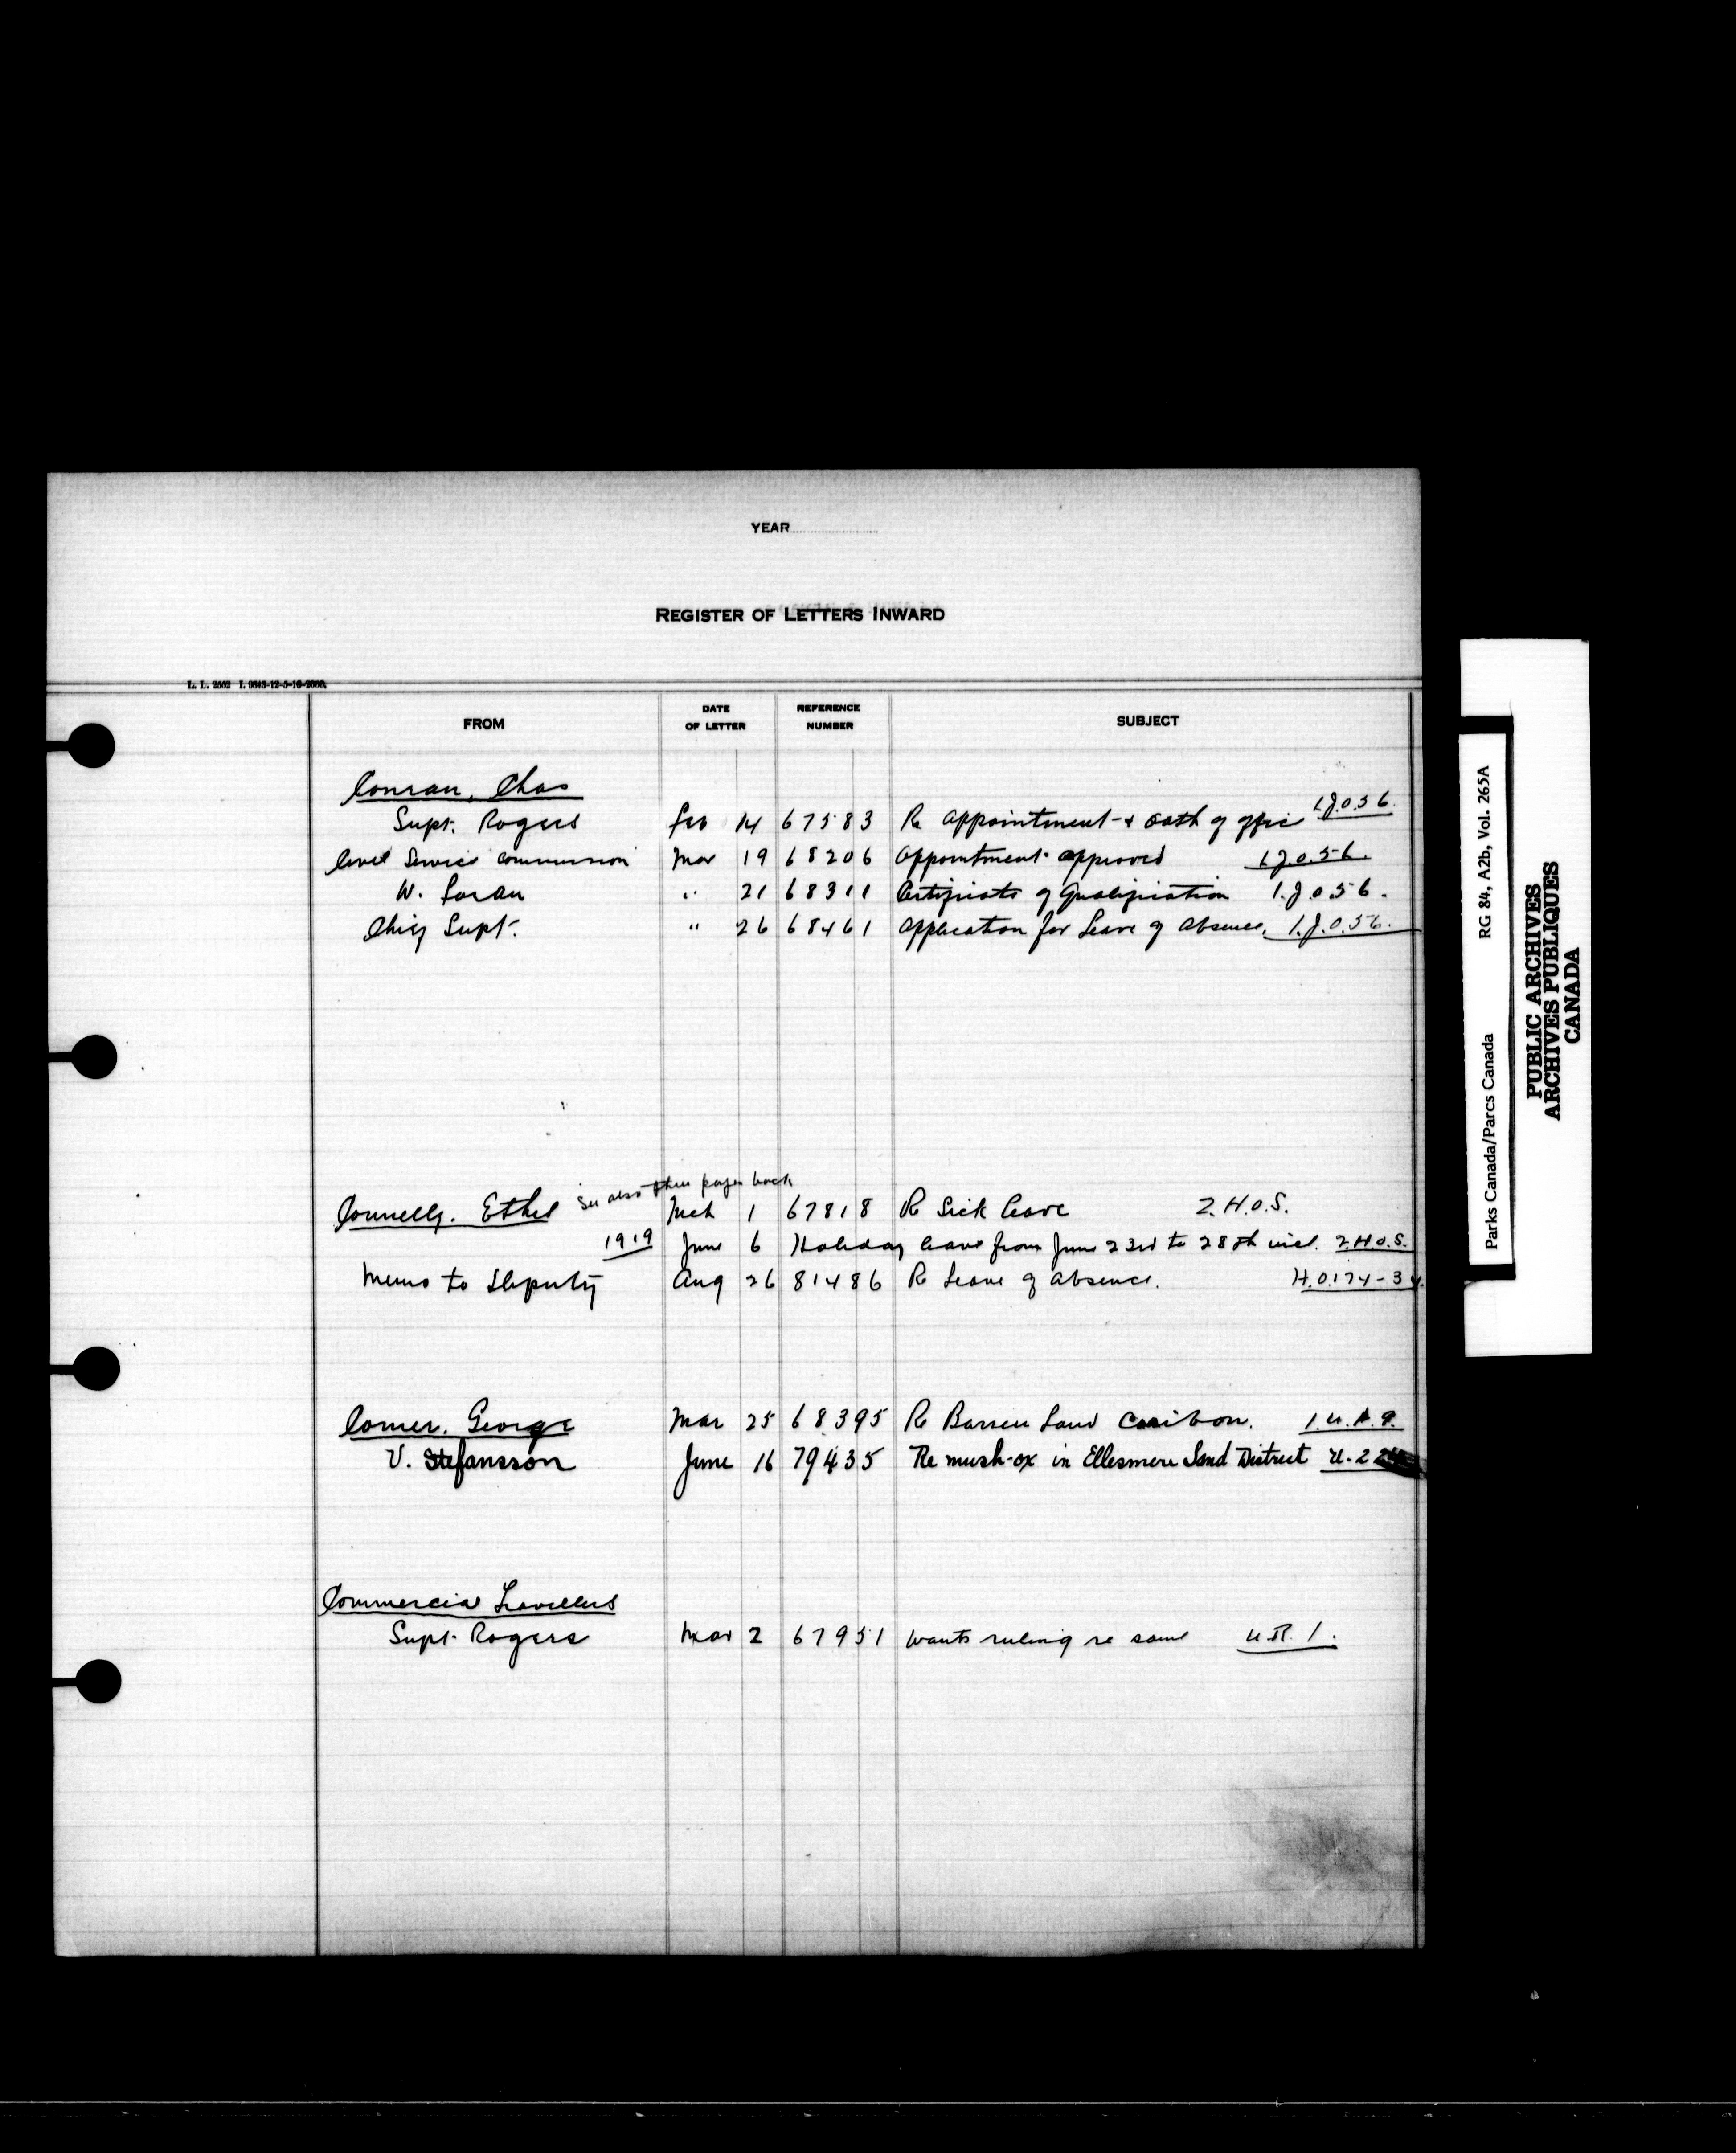 YEAR
REGISTER OF LETTERS INWARD
L. L. 2502 I. 9843-12-5-16-2000.
FROM DATE OF LETTER REFERENCE NUMBER SUBJECT
Conran, Chas
Supt. Rogers Feb 14 67583 Re appointment & oath of office 1.J.0.56.
Civil Service Commission Mar 19 68206 Appointment approved 1.J.0.56.
W. " 21 68311 Certificate of Qualification 1.J.0.56.
Chief Supt. " 26 68461 Application for Leave of Absence. 1.J.0.56.
See also three pages back
Connelly. Ethel Mch 1 67818 Re Sick leave 2.H.O.S.
1919 June 6 Holiday leave from June 23rd to 28th incl. 2.H.O.S.
Memo to Deputy Aug 26 81486 Re Leave of absence. H.0.174-34.
Comer. George Mar 25 68395 Re Barren Land Caribou.
V. Stefansson June 16 79435 Re mush-ox in Ellesmere Land District U-2
Commercial Travellers
Supt. Rogers Mar 2 67951 wants ruling re same U.R. 1.
Parks Canada/Parcs Canada RG 84, A2b, Vol. 265A
PUBLIC ARCHIVES
ARCHIVES PUBLIQUES
CANADA